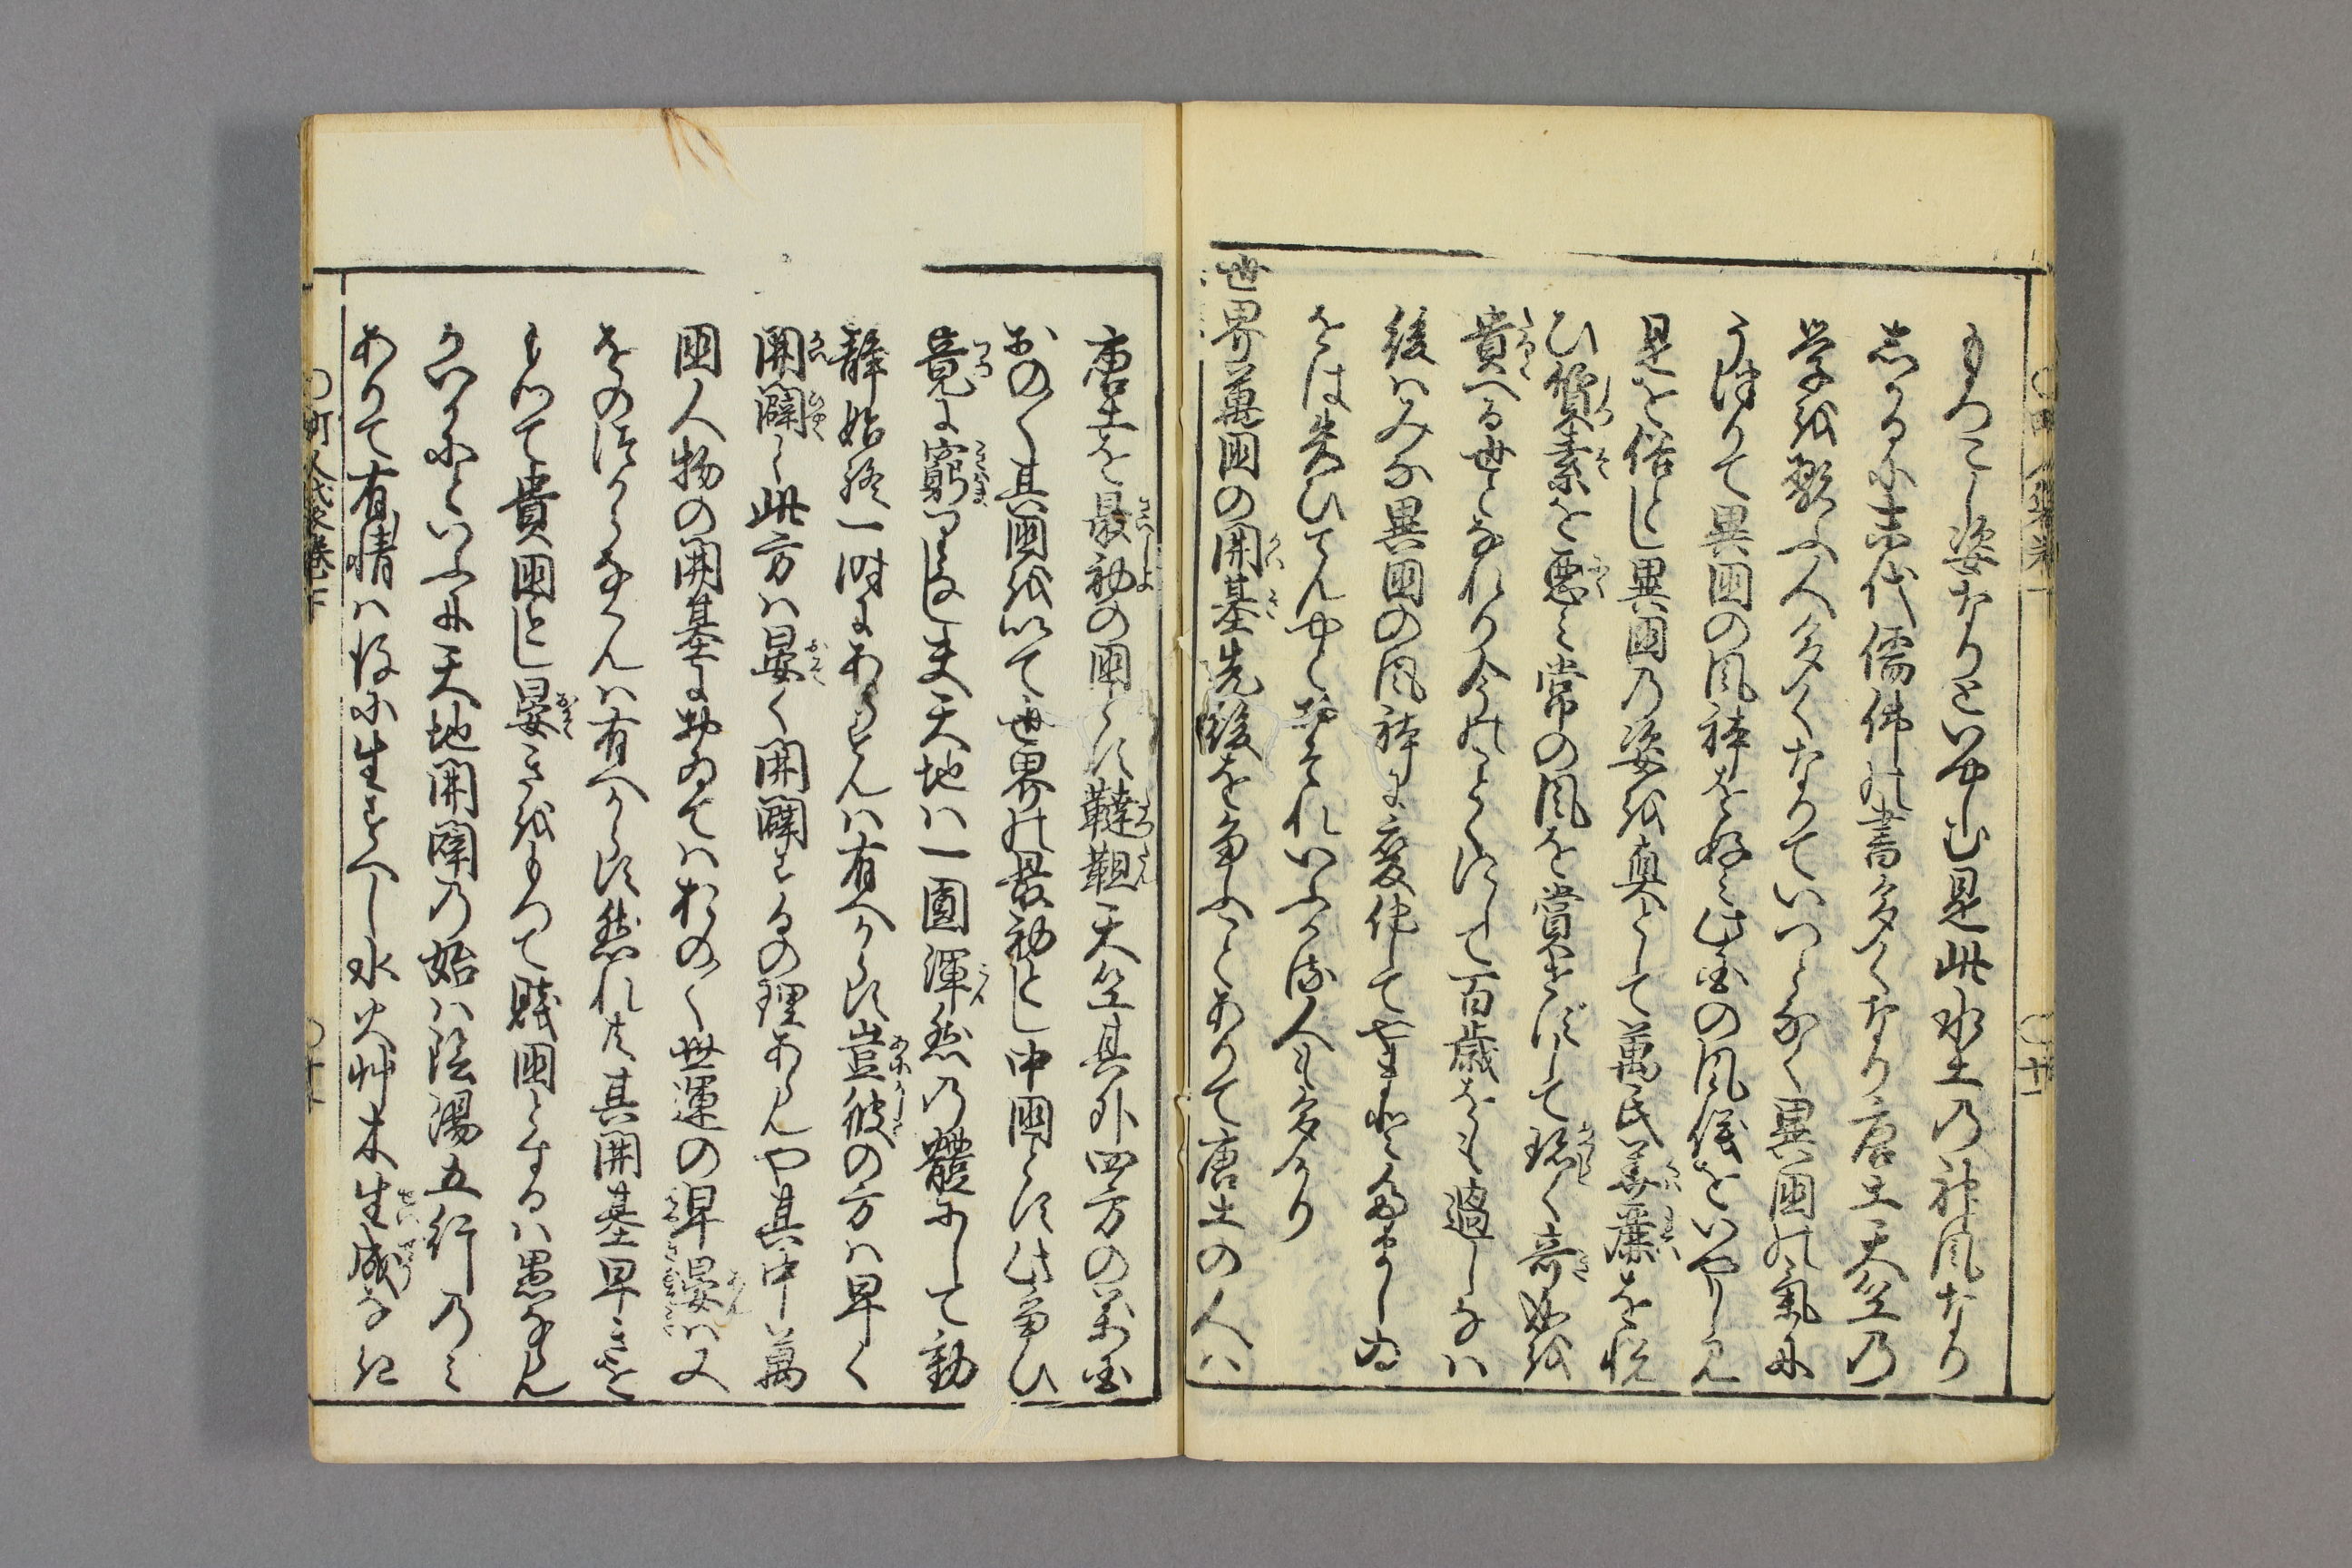 もつこし姿なりといやしむ是此水土乃神風なり
志かるに末代儒佛の書多くなり唐土天竺乃
学を翫ふ人多くなりていつとなく異国の氣に
うつりて異国の風体を好み此国の風儀をいやしみ
是を俗とし異国乃姿を真として萬民美麗を悦
ひ質素を悪み常の風を賞せずして珍く奇妙を
貴へる世となれり今のことくにして百歳をも過しなは
後はみな異国の風体に変化してやまと
をは失ひてんやとおそれいふかる人も多かり
世界萬国の開基先後を争ふことありて唐土の人は
唐土を最初の国とし韃靼天竺其外四方の万国
おの〱其国を以て世界の最初とし中国とし此争ひ
竟に窮りなし夫天地は一圓渾然乃體にして動
静始終一時にあらすんは有へからす豈彼の方は早く
開闢し此方は晏く開闢するの理あらんや其中萬
国人物の開基におゐてはおの〱世運の早晏は又
其の次第なくんは有へからす然れ共其開基早きを
もつて貴国とし晏きをもつて賤国とするは愚ならん
かいかにといふに天地開闢乃始は陰陽五行乃み
ありて有情は後に生すへし水火艸木生成なき
町人代 巻下